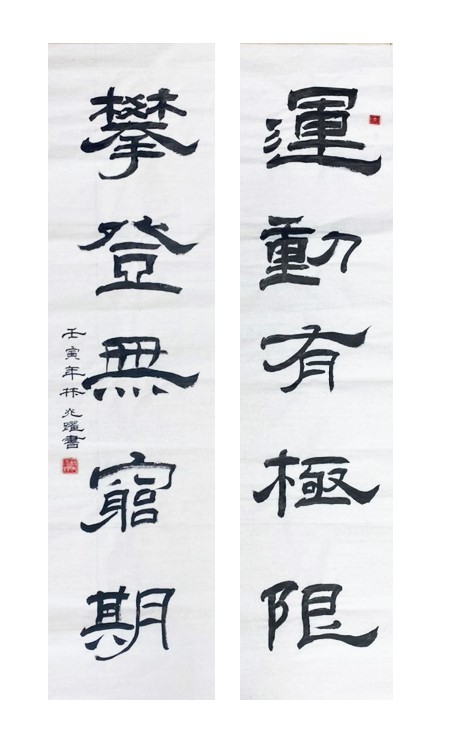 運動有極限
攀登無窮期
壬寅年林兆躍書